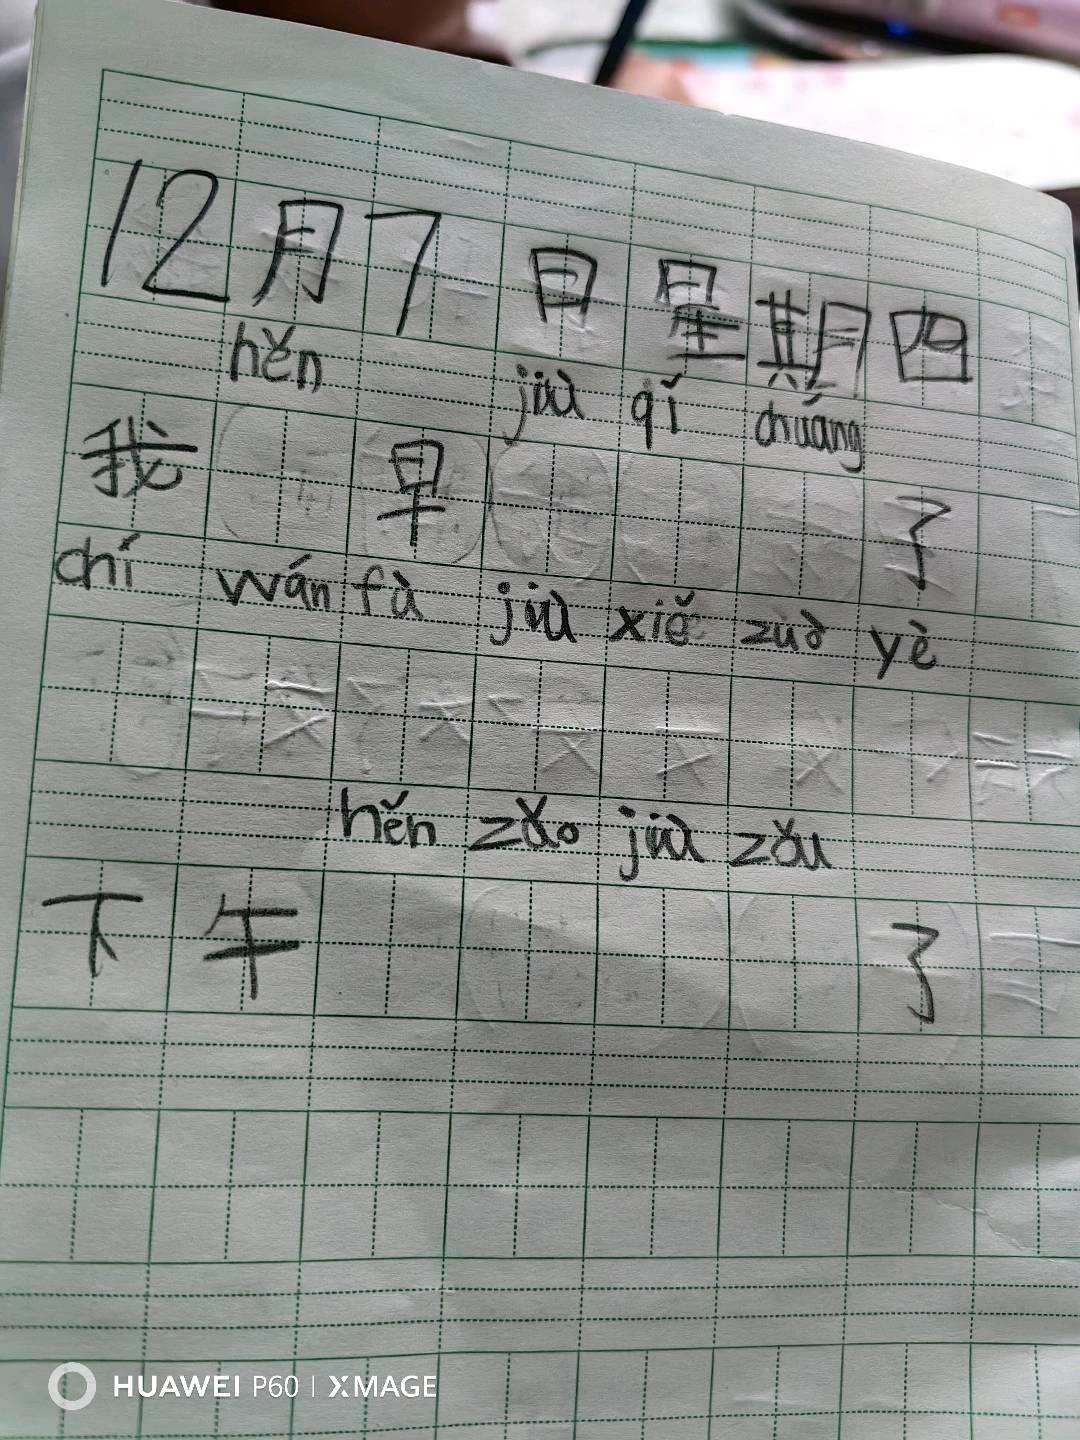 12月7日星期四
hěn jiù qǐ chuáng
我早了
chí wán fà jiù xiě zuò yè
hěn zǎo jiù zǒu
下午了
HUAWEI P60 | XMAGE